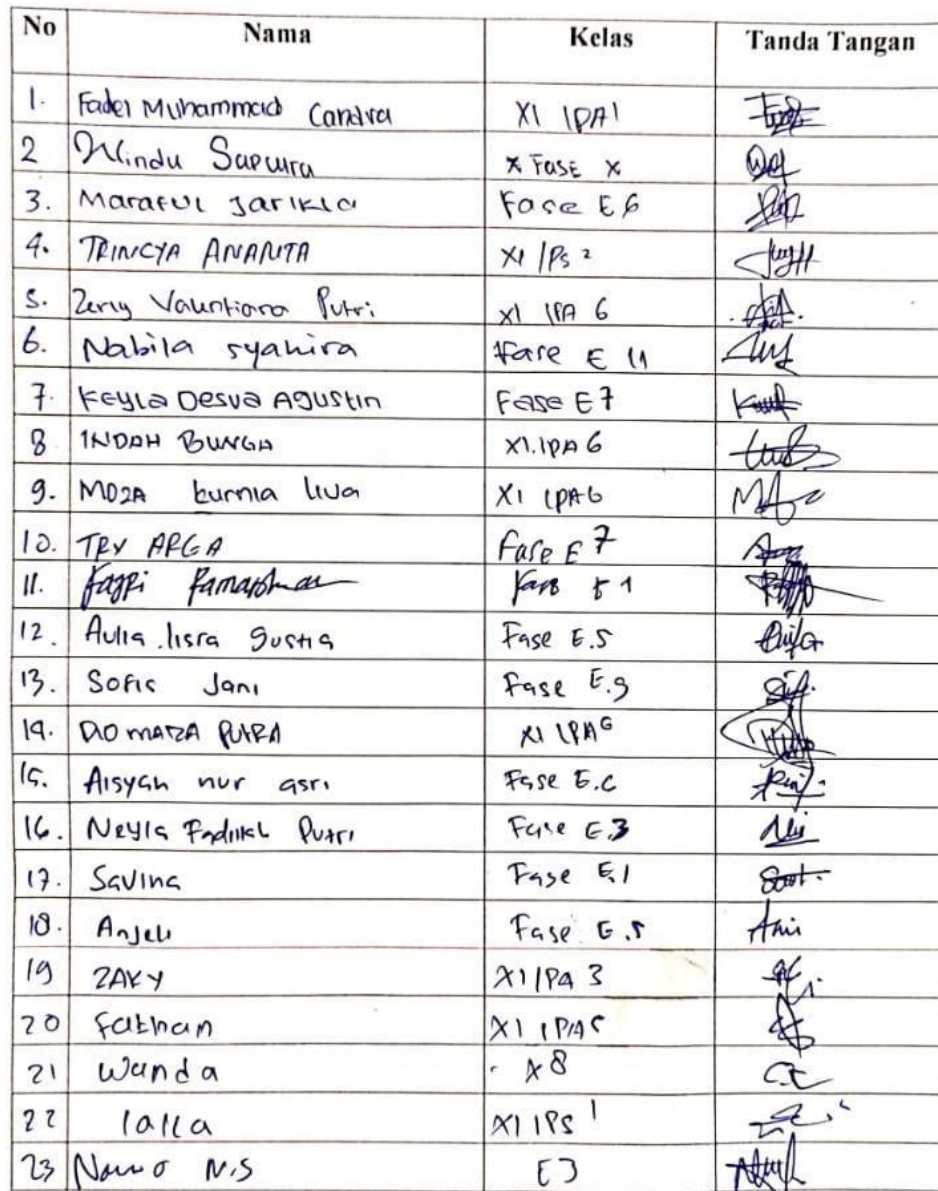 No Nama Kelas Tanda Tangan
1. Fadel Muhammad Candra XI IPA 1
2 Windu Saputra X Fase X
3. Maraful Jarikla Fase E 6
4. TRINCYA ANANTA XI IPS 2
5. Zerly Valuntiana Putri XI IPA 6
6. Nabila syahira Fase E 11
7. Keyla Desva Agustin Fase E 7
8 INDAH BUNGA XI.IPA 6
9. MOZA kurnia liva XI IPA 6
10. TRY ARGA Fase E 7
11. Fajri Fase E 1
12. Aulia lisra gustia Fase E.5
13. Sofie Jani Fase E.9
14. DIO MARZA PUTRA XI IPA 6
15. Aisyah nur asri Fase E.6
16. Neyla Fadillah Putri Fase E.3
17. Savina Fase E.1
18. Anjeli Fase E.5
19 ZAKY XI IPA 3
20 Fathan XI IPA 5
21 Wanda X 8
22 laila XI IPS 1
23 N.S E3